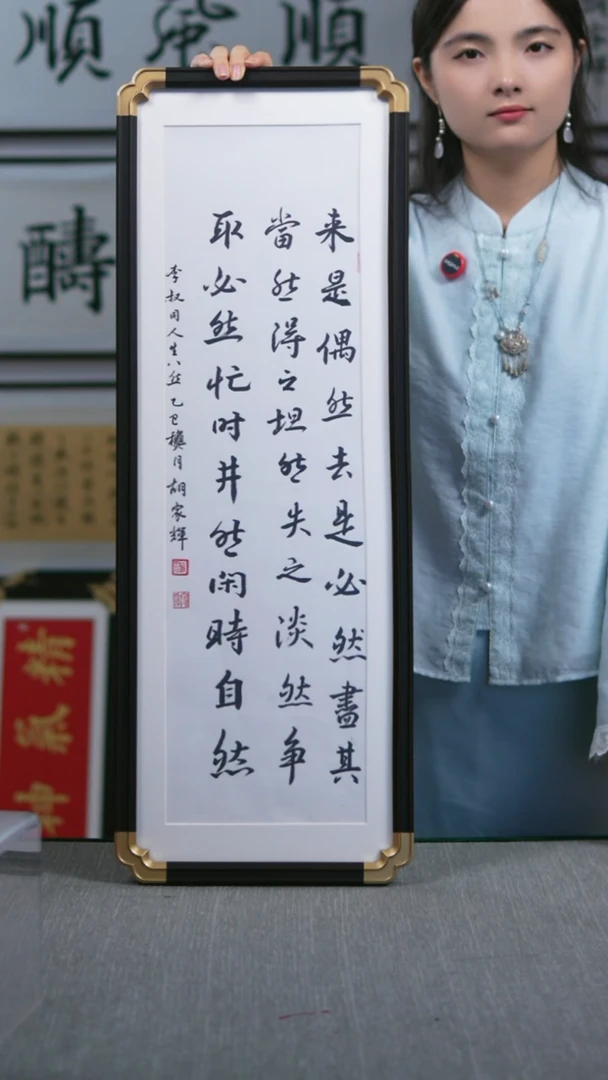 来是偶然去是必然盡其
當然得之坦然失之淡然争
取必然忙时井然闲時自然
李叔同人生八然乙巳穐月胡家輝
順風順
醻
精氣神